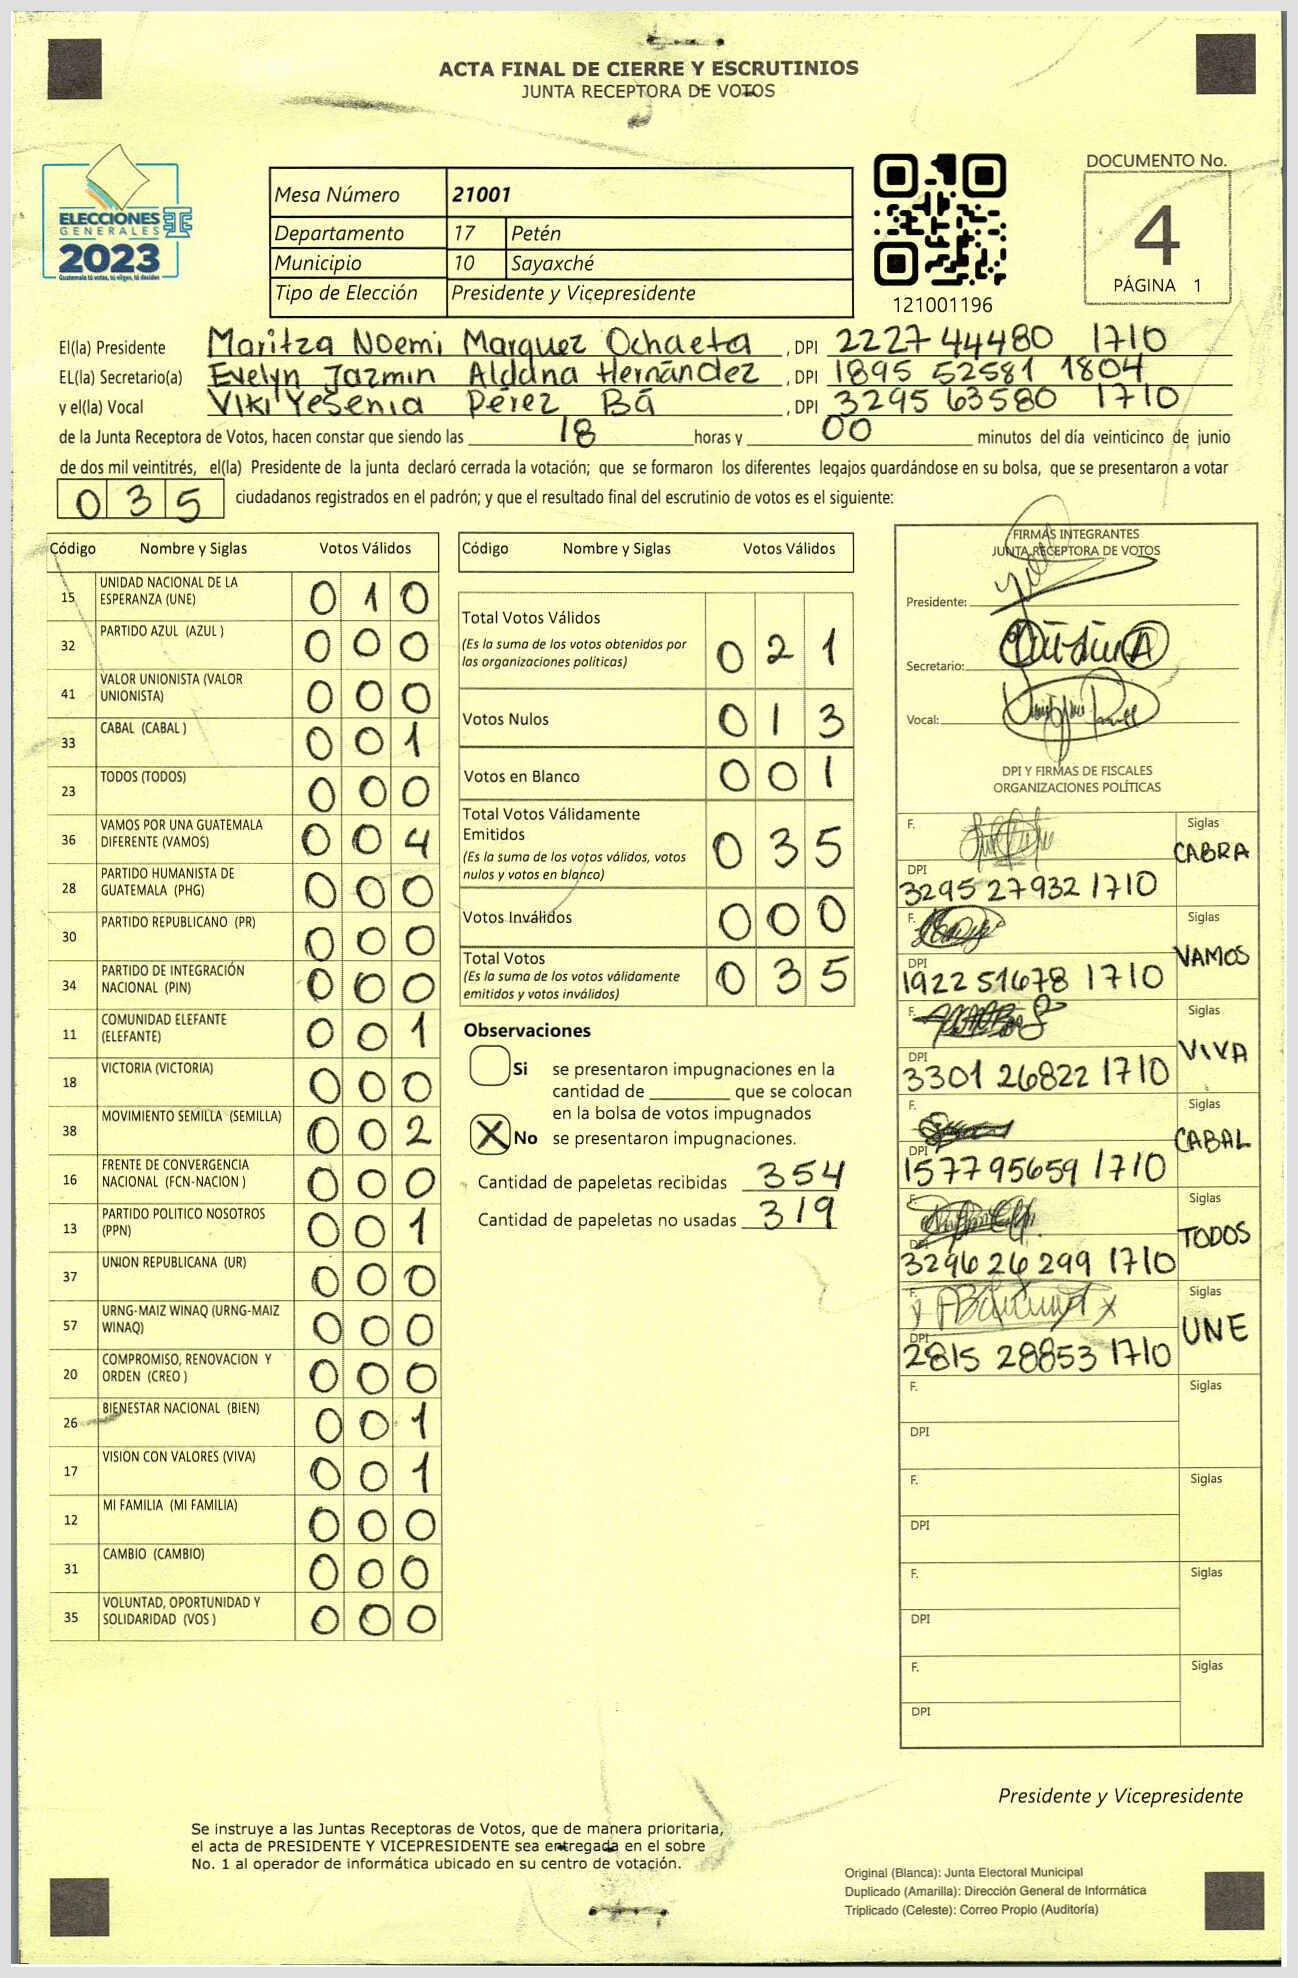 ACTA FINAL DE CIERRE Y ESCRUTINIOS
JUNTA RECEPTORA DE VOTOS
ELECCIONES
GENERALES
2023
Guatemala tú votas, tú eliges, tú decides
Mesa Número 21001
Departamento 17 Petén
Municipio 10 Sayaxché
Tipo de Elección Presidente y Vicepresidente
121001196
DOCUMENTO No.
4
PÁGINA 1
El(la) Presidente Maritza Noemi Marquez Ochaeta, DPI 2227 44480 1710
EL(la) Secretario(a) Evelyn Jazmin Aldana Hernández, DPI 1895 52581 1804
y el(la) Vocal Viki Yesenia Pérez Bá, DPI 3295 63580 1710
de la Junta Receptora de Votos, hacen constar que siendo las 18 horas y 00 minutos del día veinticinco de junio
de dos mil veintitrés, el(la) Presidente de la junta declaró cerrada la votación; que se formaron los diferentes legajos guardándose en su bolsa, que se presentaron a votar
035 ciudadanos registrados en el padrón; y que el resultado final del escrutinio de votos es el siguiente:
Código Nombre y Siglas Votos Válidos
15 UNIDAD NACIONAL DE LA ESPERANZA (UNE) 010
32 PARTIDO AZUL (AZUL ) 000
41 VALOR UNIONISTA (VALOR UNIONISTA) 000
33 CABAL (CABAL ) 001
23 TODOS (TODOS) 000
36 VAMOS POR UNA GUATEMALA DIFERENTE (VAMOS) 004
28 PARTIDO HUMANISTA DE GUATEMALA (PHG) 000
30 PARTIDO REPUBLICANO (PR) 000
34 PARTIDO DE INTEGRACIÓN NACIONAL (PIN) 000
11 COMUNIDAD ELEFANTE (ELEFANTE) 001
18 VICTORIA (VICTORIA) 000
38 MOVIMIENTO SEMILLA (SEMILLA) 002
16 FRENTE DE CONVERGENCIA NACIONAL (FCN-NACION ) 000
13 PARTIDO POLITICO NOSOTROS (PPN) 001
37 UNION REPUBLICANA (UR) 000
57 URNG-MAIZ WINAQ (URNG-MAIZ WINAQ) 000
20 COMPROMISO, RENOVACION Y ORDEN (CREO ) 000
26 BIENESTAR NACIONAL (BIEN) 001
17 VISION CON VALORES (VIVA) 001
12 MI FAMILIA (MI FAMILIA) 000
31 CAMBIO (CAMBIO) 000
35 VOLUNTAD, OPORTUNIDAD Y SOLIDARIDAD (VOS ) 000
Código Nombre y Siglas Votos Válidos
Total Votos Válidos 021
(Es la suma de los votos obtenidos por
las organizaciones políticas)
Votos Nulos 013
Votos en Blanco 001
Total Votos Válidamente
Emitidos 035
(Es la suma de los votos válidos, votos
nulos y votos en blanco)
Votos Inválidos 000
Total Votos 035
(Es la suma de los votos válidamente
emitidos y votos inválidos)
Observaciones
Si se presentaron impugnaciones en la
cantidad de ________ que se colocan
en la bolsa de votos impugnados
X No se presentaron impugnaciones.
Cantidad de papeletas recibidas 354
Cantidad de papeletas no usadas 319
FIRMAS INTEGRANTES
JUNTA RECEPTORA DE VOTOS
Presidente:
Secretario:
Vocal:
DPI Y FIRMAS DE FISCALES
ORGANIZACIONES POLÍTICAS
F. Siglas
CABRA
DPI 3295 27932 1710
F. Siglas
VAMOS
DPI 1922 51678 1710
F. Siglas
VIVA
DPI 3301 26822 1710
F. Siglas
CABAL
DPI 1577 95659 1710
F. Siglas
TODOS
DPI 3296 26299 1710
F. Siglas
UNE
DPI 2815 28853 1710
F. Siglas
DPI
F. Siglas
DPI
F. Siglas
DPI
F. Siglas
DPI
Presidente y Vicepresidente
Se instruye a las Juntas Receptoras de Votos, que de manera prioritaria,
el acta de PRESIDENTE Y VICEPRESIDENTE sea entregada en el sobre
No. 1 al operador de informática ubicado en su centro de votación.
Original (Blanca): Junta Electoral Municipal
Duplicado (Amarilla): Dirección General de Informática
Triplicado (Celeste): Correo Propio (Auditoría)